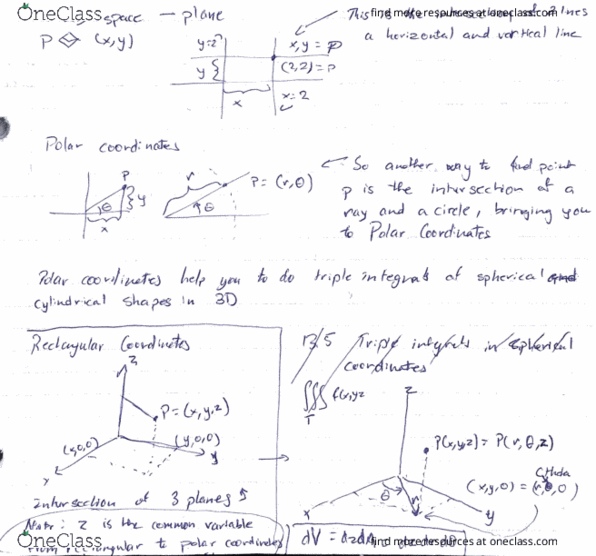 OneClass
find more resources at oneclass.com
space — plane
This is the intersection of 2 lines
a horizontal and vertical line
P (x,y)
y=2
x,y = P
(2,2)=P
y
x
x=2
Polar coordinates
P
y
θ
x
r
P=(r,θ)
θ
So another way to find point
p is the intersection of a
ray and a circle, bringing you
to Polar Coordinates
Polar coordinates help you to do triple integrals of spherical and
cylindrical shapes in 3D
Rectangular Coordinates
z
P=(x,y,z)
(x,0,0)
(y,0,0)
x
y
intersection of 3 planes
Note: z is the common variable
from rectangular to polar coordinates
13.5 Triple integrals in Spherical
coordinates
∭ f(x,yz
T
z
P(x,y,z) = P(r,θ,z)
(x,y,0) = (r,θ,0)
θ
r
x
y
dV =
OneClass
find more resources at oneclass.com